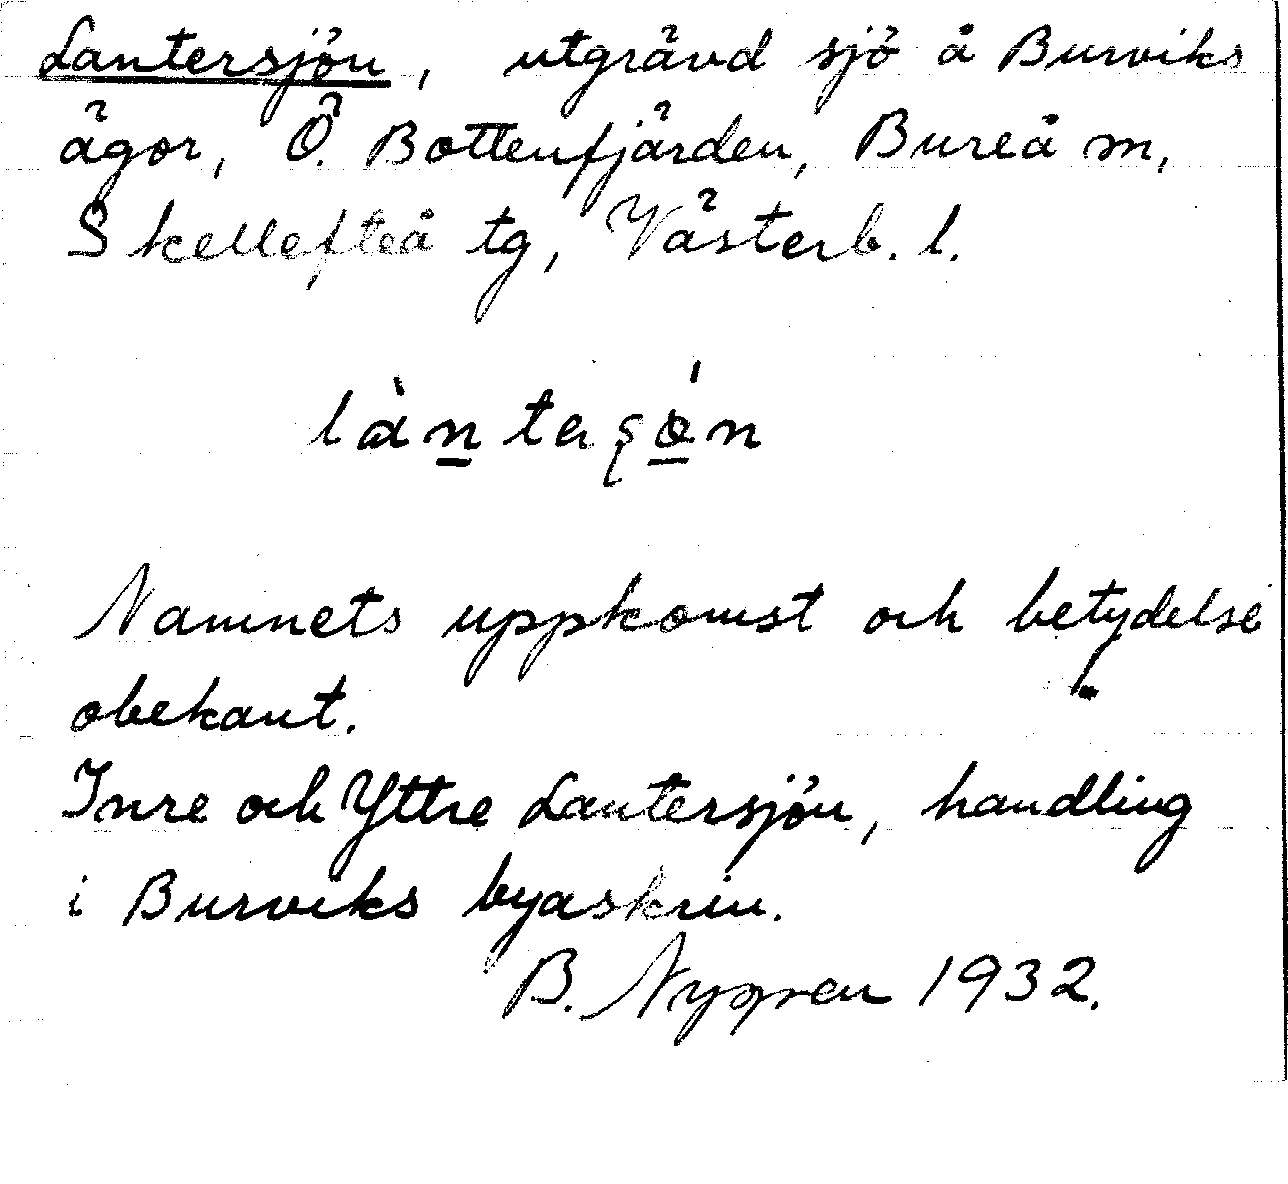 Lantersjön, utgrävd sjö å Burviks
ägor, Ö. Bottenfjärden, Bureå m,
Skellefteå tg, Västerb. l.
Namnets uppkomst och betydelse
obekant.
Inre och Yttre Lantersjön, handling
i Burviks byaskrin.
B. Nygren 1932.